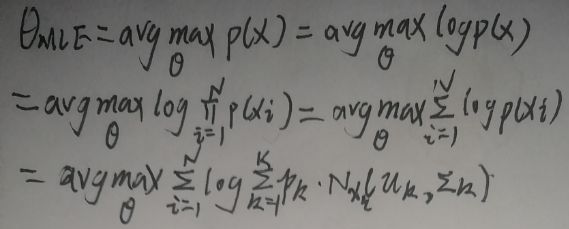 θ_MLE = arg max_θ p(x) = arg max_θ log p(x)
= arg max_θ log ∏_{i=1}^{N} p(x_i) = arg max_θ ∑_{i=1}^{N} log p(x_i)
= arg max_θ ∑_{i=1}^{N} log ∑_{k=1}^{K} p_k · N_{x_i}(u_k, Σ_k)